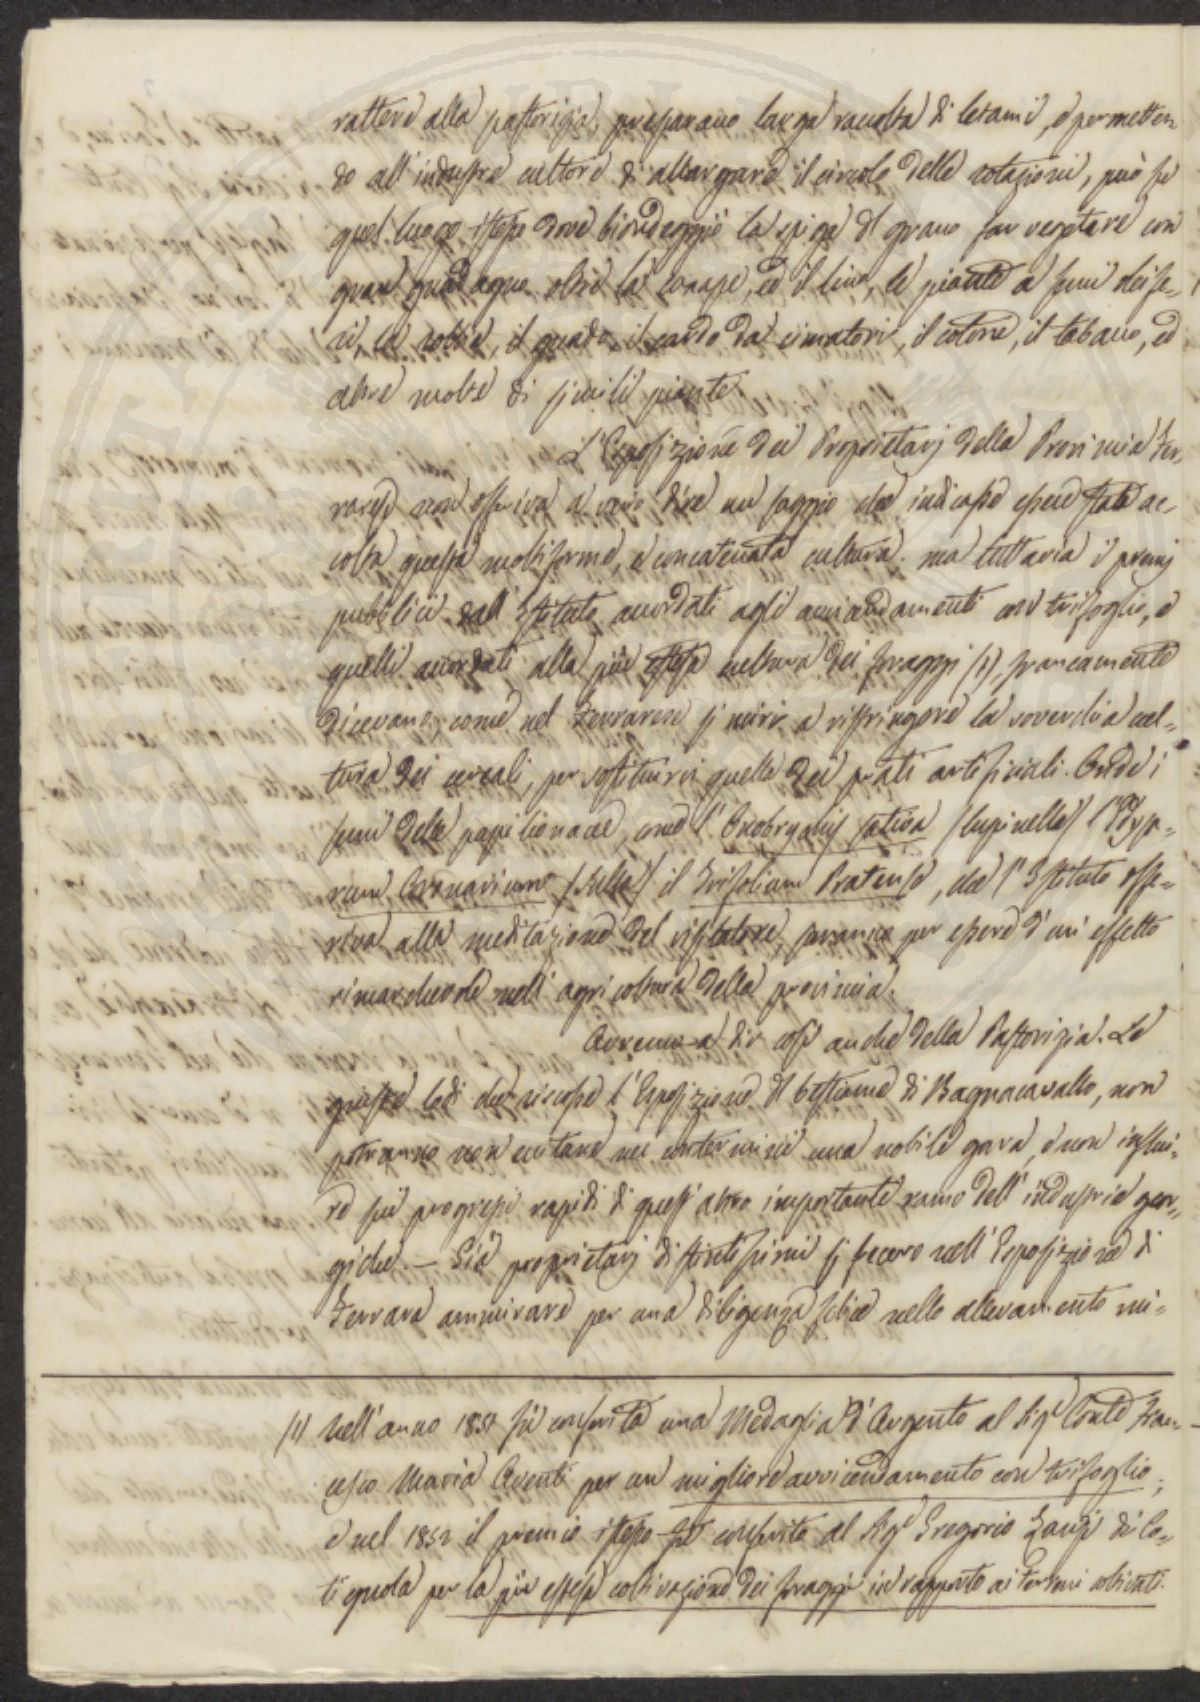 rattere alla pastorizia, preparano larga raccolta di letami, e permetten-
do all'industre cultore di allargare il circolo delle rotazioni, può su
quel luogo istesso dove biondeggiò la spiga del grano far vegetare con
gran guadagno oltre la canape, ed il lino, le piante a semi oleife-
ri, la robbia, il guado, il cardo da cimatori, il cotone, il tabacco, ed
altre molte di simili piante.
L'Esposizione dei Proprietarj della Provincia Fer-
rarese non offeriva a vero dire un saggio che indicasse essere stata ac-
colta questa moltiforme, e concatenata cultura. ma tuttavia i premj
pubblici dall'Istituto accordati agli avvicendamenti con trifoglio, e
quelli accordati alla più estesa cultura dei foraggi (1), francamente
dicevano, come nel Ferrarese si miri a ristringere la soverchia cul-
tura dei cereali, per sostituirvi quella dei prati artificiali. Onde i
semi delle papilionacee, come l'Onobrychis sativa (lupinella) l'Hedysa-
rum Coronarium (Sulla) il Trifolium Pratense, che l'Istituto offe-
riva alla meditazione del visitatore, saranno per essere d'un effetto
rimarchevole nell'agricoltura della provincia.
Avremo a dir così anche della Pastorizia. Le
giuste lodi che riscosse l'Esposizione del bestiame di Bagnacavallo, non
potranno non eccitare nei contermini una nobile gara, e non influi-
re sui progressi rapidi di quest'altro importante ramo dell'industrie geor-
giche. — Già proprietarj distintissimi si fecero nell'Esposizione di
Ferrara ammirare per una diligenza felice nello allevamento mi-
(1) Nell'anno 1851 fu conferita una Medaglia d'Argento al Sigr Conte Fran-
cesco Maria Aventi per un migliore avvicendamento con trifoglio;
e nel 1852 il premio istesso fu conferito al Sigr Gregorio Zangi di Co-
tignola per la più estesa coltivazione dei foraggi in rapporto ai terreni coltivati.